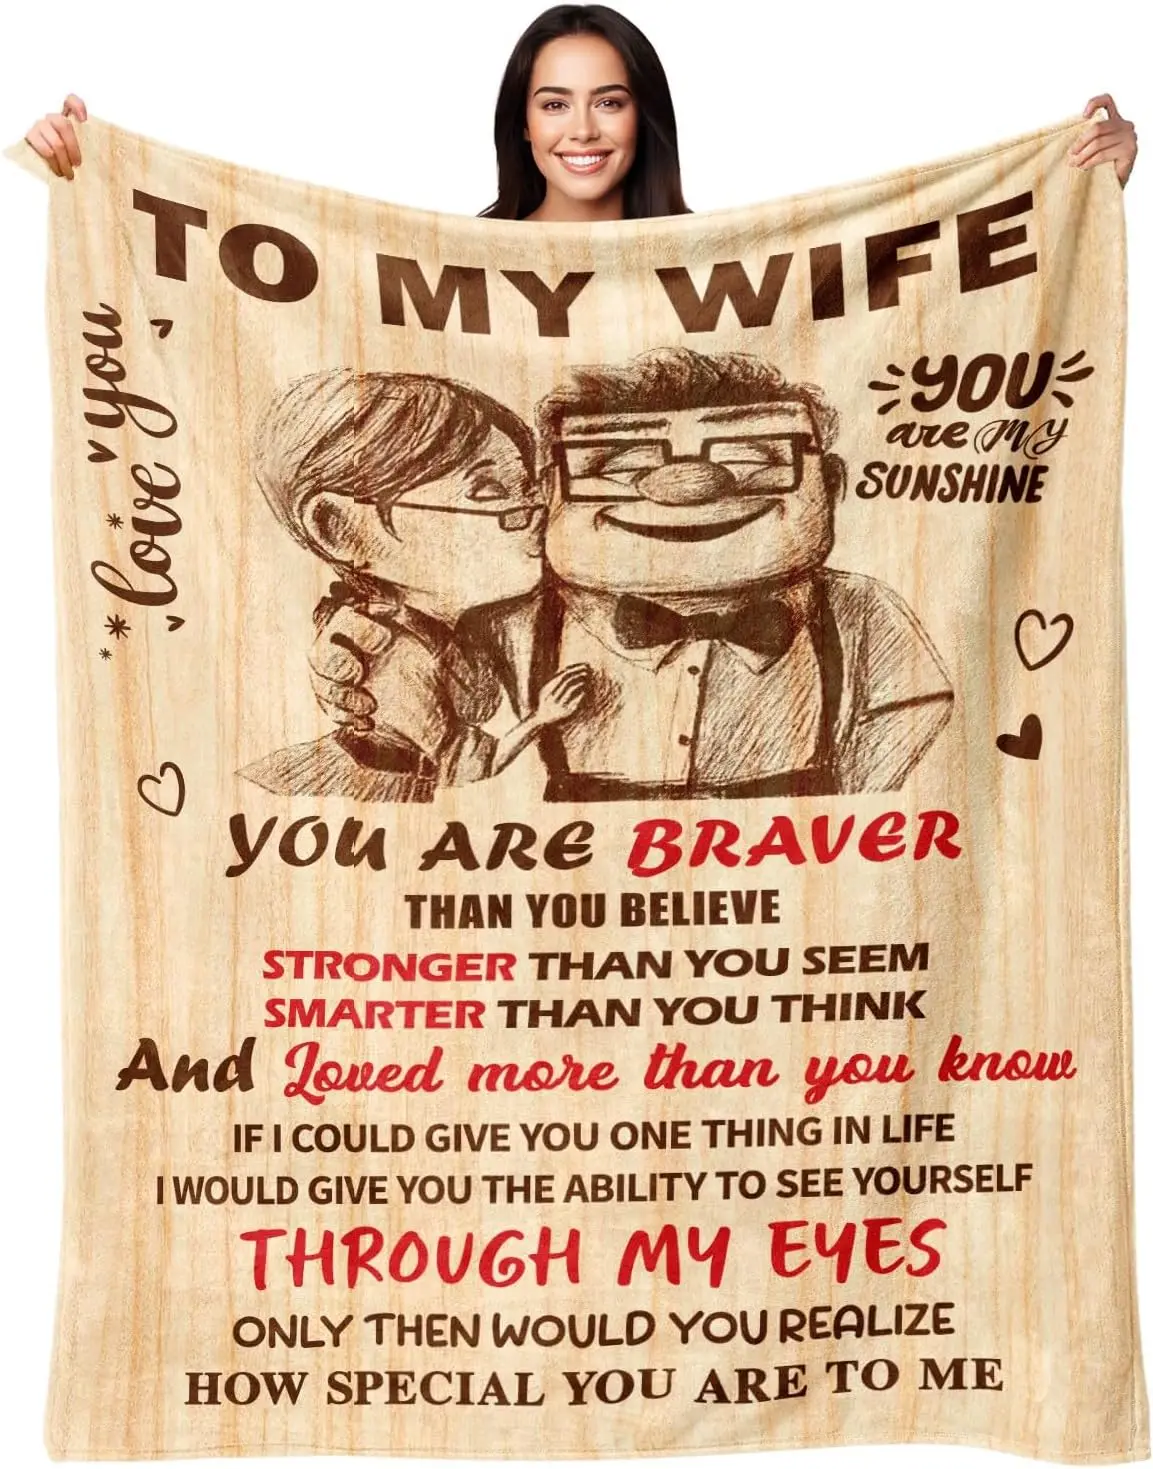 TO MY WIFE
love you
YOU
are MY
SUNSHINE
YOU ARE BRAVER
THAN YOU BELIEVE
STRONGER THAN YOU SEEM
SMARTER THAN YOU THINK
And Loved more than you know
IF I COULD GIVE YOU ONE THING IN LIFE
I WOULD GIVE YOU THE ABILITY TO SEE YOURSELF
THROUGH MY EYES
ONLY THEN WOULD YOU REALIZE
HOW SPECIAL YOU ARE TO ME